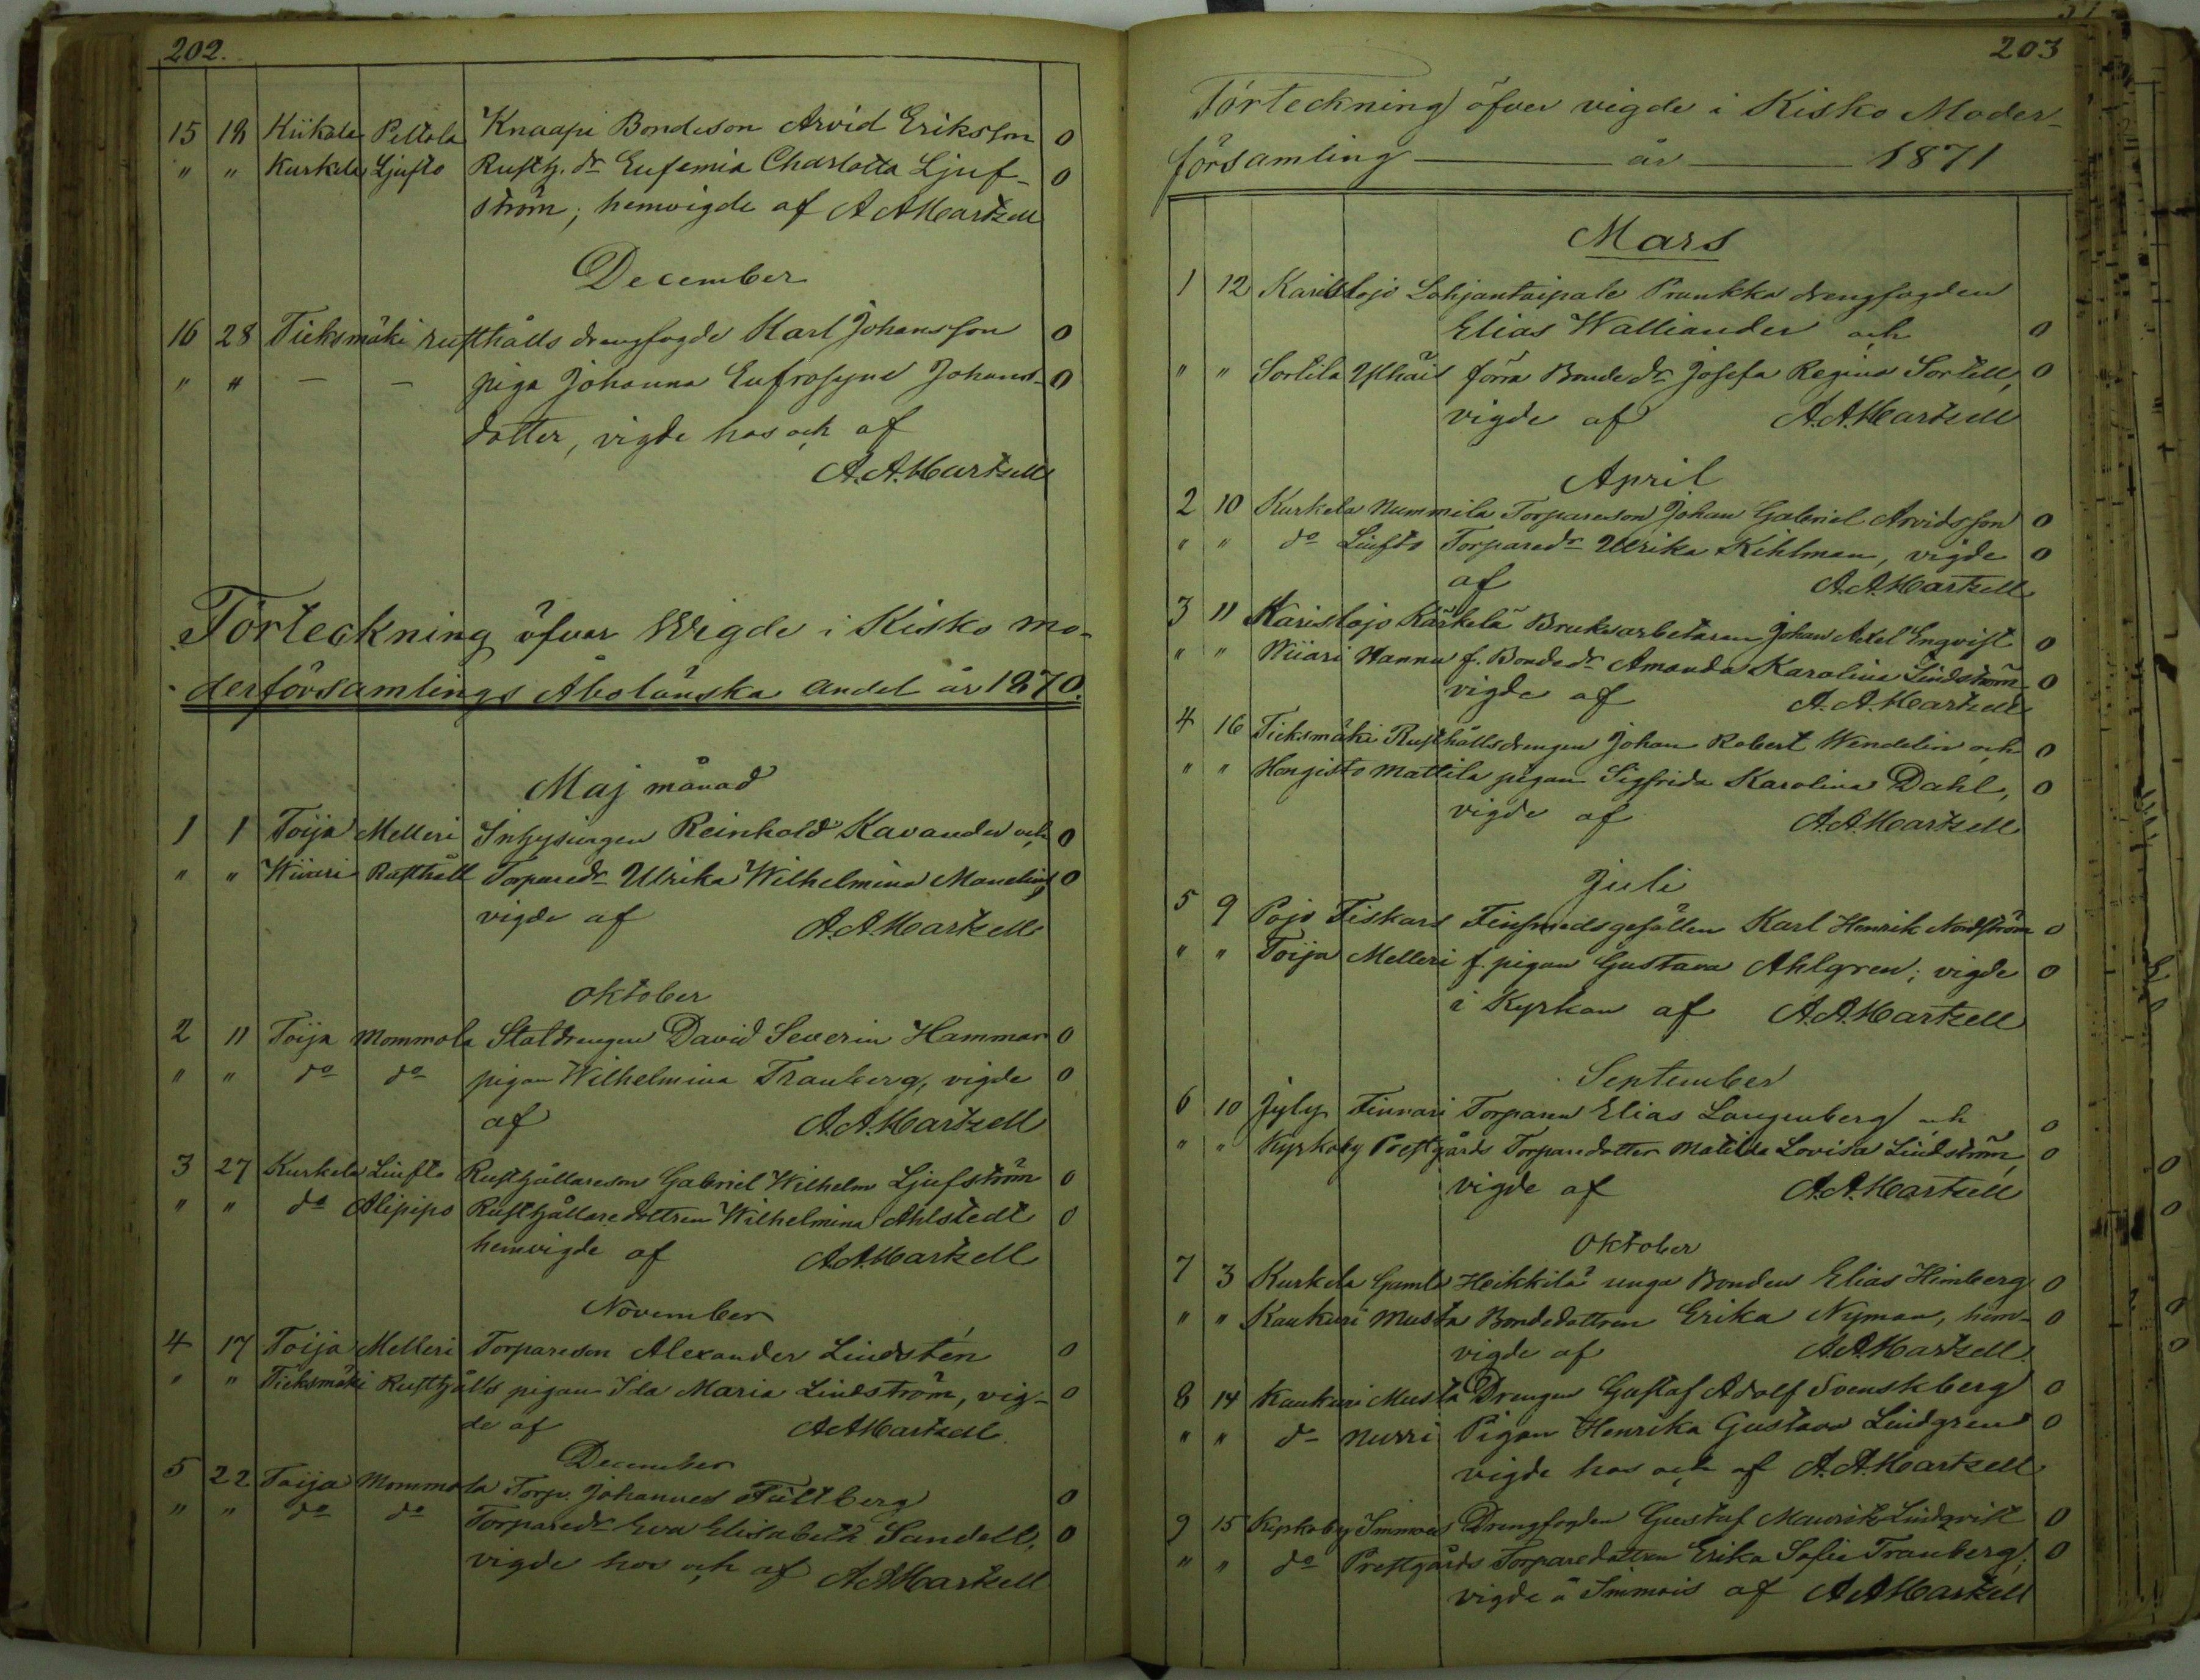 202.
15 18 Kiikala Peltola Knaapi Bondeson Arvid Eriksson 0
" " Kurkela Ljufto Rusth. dr Eufemia Charlotta Ljuf- 0
ström; hemvigde af A A Hartzell
December
16 28 Tieksmäki rusthålls drengfogde Karl Johansson 0
" " — — piga Johanna Eufrosyne Johans- 0
dotter, vigde hos och af
A. A. Hartzell
Förteckning öfver Wigde i Kisko mo-
derförsamlings Åbolänska andel år 1870.
Maj månad
1 1 Toija Melleri Inhysingen Reinhold Kavander och 0
" " Wiiari Rusthåll Torparedr Ulrika Wilhelmina Mandelin, 0
vigde af A. A. Hartzell
Oktober
2 11 Toija Mommola Statdrengen David Severin Hammar 0
" " do do pigan Wilhelmina Tranberg, vigde 0
af A. A. Hartzell
3 27 Kurkela Liufto Rusthållareson Gabriel Wilhelm Ljufström 0
" " do Alipipo Rusthållaredottren Wilhelmina Ahlstedt 0
hemvigde af A. A. Hartzell
November
4 17 Toija Melleri Torpareson Alexander Lindstén 0
" " Tieksmäki Rusthålls pigan Ida Maria Lindström, vig- 0
de af A A Hartzell
December
5 22 Toija Mommola Torp. Johannes 0
" " do do Torparedr Eva Elisabeth Sandell, 0
vigde hos och af A A Hartzell
203
Förteckning öfver vigde i Kisko Moder-
församling — år — 1871
Mars
1 12 Karislojo Lohjantaipale Prunkka drengfogden
Elias Walliander och 0
" " Sorlila Ylhäis förra Bondedr Josefa Regina Sortell, 0
vigde af A. A. Hartzell
April
2 10 Kurkela Nummila Torpareson Johan Gabriel Arvidsson 0
" " do Liufto Torparedr Ulrika Kihlman, vigde 0
af A. A. Hartzell
3 11 Karislojo Kärkelä Bruksarbetaren Johan Axel Engvist 0
" " Wiiari Hannu f. Bondedr Amanda Karolina Lindström, 0
vigde af A. A. Hartzell
4 16 Tieksmäki Rusthållsdrengen Johan Robert Wendelin och 0
" " Hongisto Mattila pigan Sigfrida Karolina Dahl, 0
vigde af A. A. Hartzell
Juli
5 9 Pojo Fiskars Finsmedsgesällen Karl Henrik Nordström 0
" " Toija Melleri f. pigan Gustava Ahlgren; vigde 0
i Kyrkan af A. A. Hartzell
September
6 10 Jyly Finnari Torparen Elias Langenberg och 0
" " Kyrkoby Prestgårds Torparedotter Matilda Lovisa Lindström, 0
vigde af A. A. Hartzell
Oktober
7 3 Kurkela Gamla Heikkilä unga Bonden Elias Himberg 0
" " Kaukuri Musta Bondedottren Erika Nyman, hem- 0
vigde af A. A. Hartzell.
8 14 Kaukuri Musta Drengen Gustaf Adolf Svenskberg 0
" " do Nurri Pigan Henrika Gustava Lindgren 0
vigde hos och af A. A. Hartzell
9 15 Kyrkoby Immois Drengfogden Gustaf Mauritz Lindqvist 0
" " do Prestgårds Torparedottren Erika Sofia Tranberg; 0
vigde å Immois af A A Hartzell